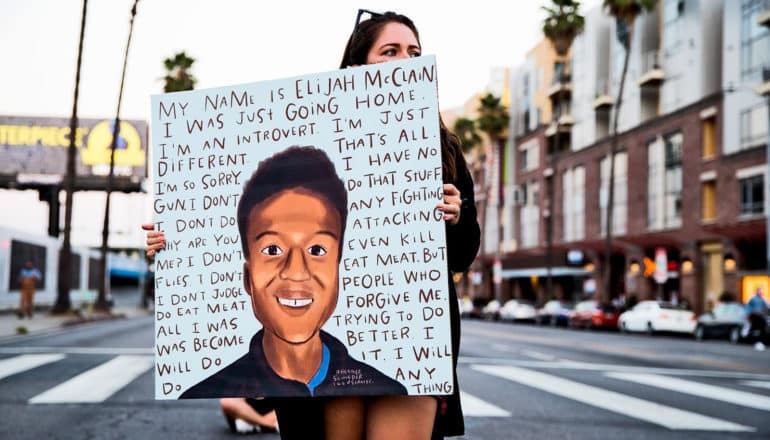 MY NAME IS ELIJAH MCCLAIN
I WAS JUST GOING HOME.
I'M AN INTROVERT. I'M JUST
DIFFERENT. THAT'S ALL.
I'M SO SORRY I HAVE NO
GUN. I DON'T DO THAT STUFF
I DON'T DO ANY FIGHTING
WHY ARE YOU ATTACKING
ME? I DON'T EVEN KILL
FLIES. I DON'T EAT MEAT. BUT
I DON'T JUDGE PEOPLE WHO
DO EAT MEAT FORGIVE ME.
ALL I WAS TRYING TO DO
WAS BECOME BETTER. I
WILL DO IT. I WILL
DO ANY
THING